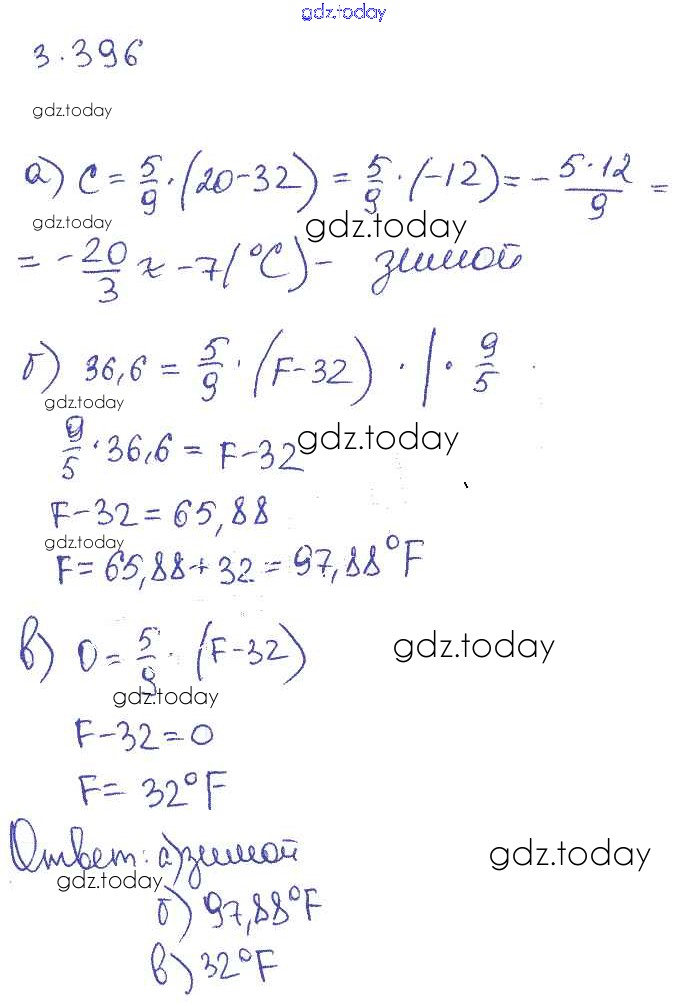 gdz.today
3.396
gdz.today
а) C = 5/9 · (20-32) = 5/9 · (-12) = - 5·12/9 =
gdz.today
gdz.today
= - 20/3 ≈ -7 (°C) - зимой
б) 36,6 = 5/9 · (F-32) · | · 9/5
gdz.today
gdz.today
9/5 · 36,6 = F-32
F-32 = 65,88
gdz.today
F = 65,88 + 32 = 97,88°F
в) 0 = 5/9 · (F-32)
gdz.today
gdz.today
F-32 = 0
F = 32°F
Ответ: а) зимой
gdz.today
gdz.today
б) 97,88°F
в) 32°F